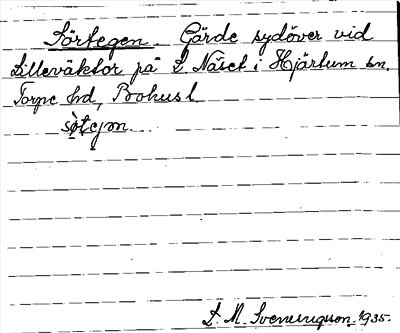 Sörtegen. Gärde sydöver vid
Lilleväktor på L. Näset i Hjärtum sn.
Torpe hd, Bohusl.
sø̀tejən.
S. M. Svenungsson 1935.